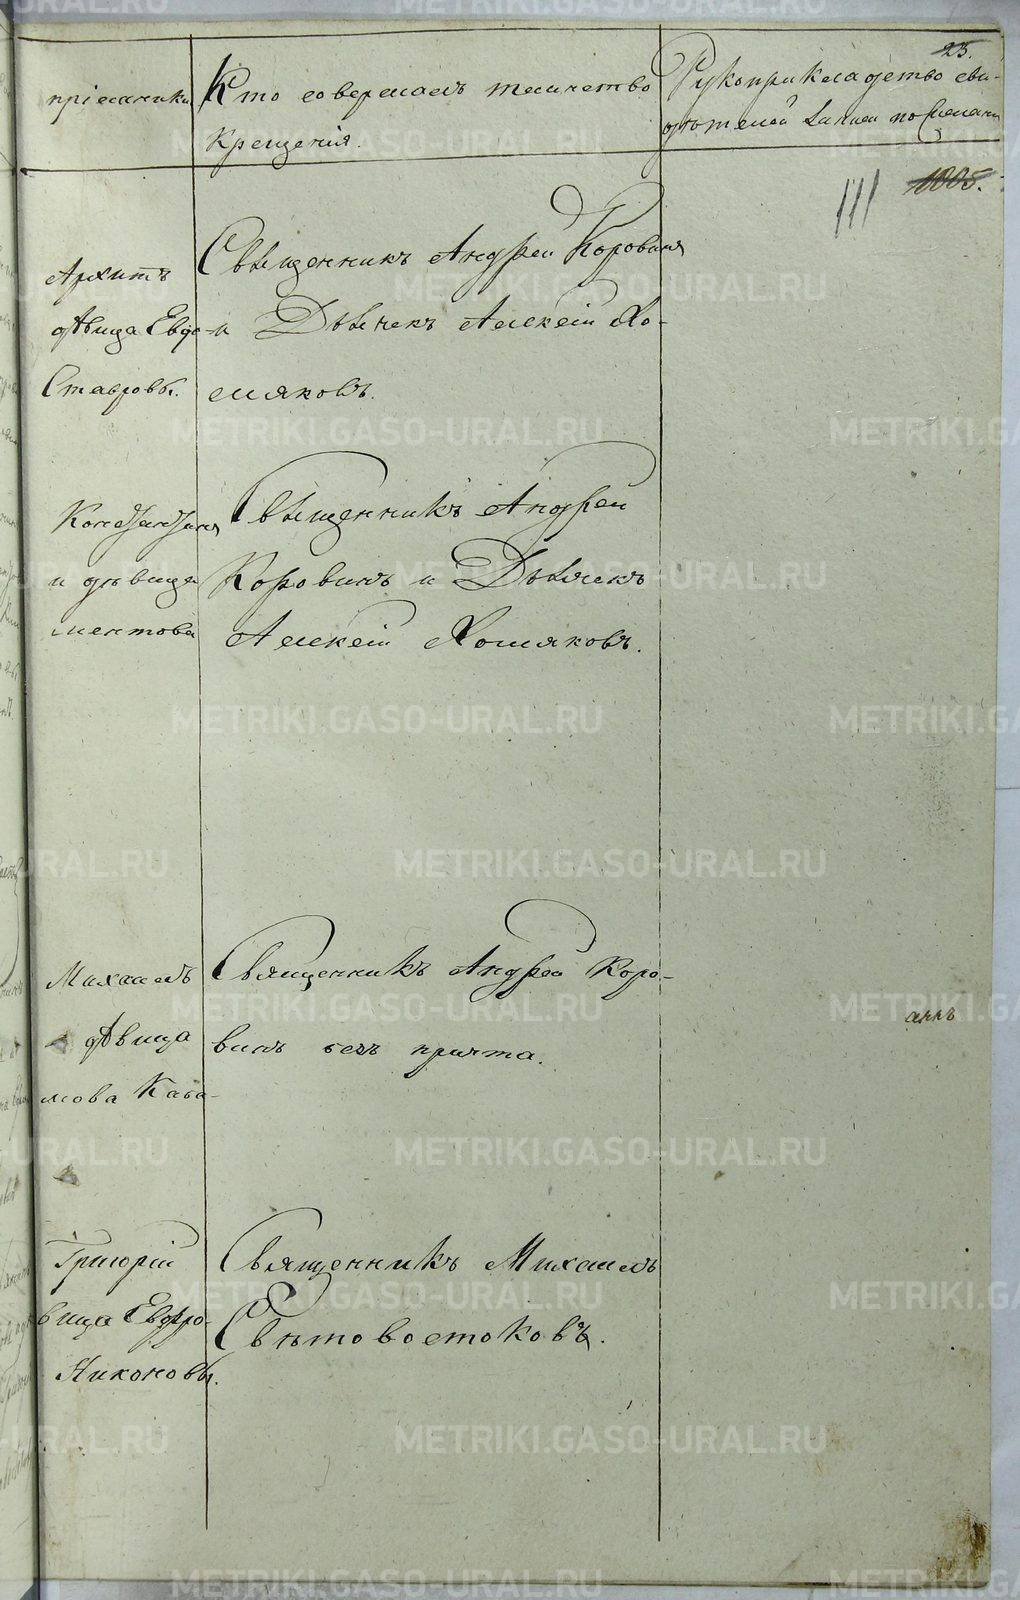 23.
пріемники
Кто совершалъ таинство
крещенія.
Рукоприкладство сви-
дѣтелей записи по желанію
111 1005.
Архипъ
дѣвица Евдо-
Ставровы.
Священникъ Андрей Коровинъ
и Дьячекъ Алексій Хо-
мяковъ.
Константинъ
и дѣвица
ментова
Священникъ Андрей
Коровинъ и Дьячекъ
Алексій Хомяковъ.
Михаилъ
дѣвица
мова Каба-
Священникъ Андрей Коро-
винъ безъ причта.
Григорій
вица Евфро-
Никоновы.
Священникъ Михаилъ
Свѣтовостоковъ.
METRIKI.GASO-URAL.RU